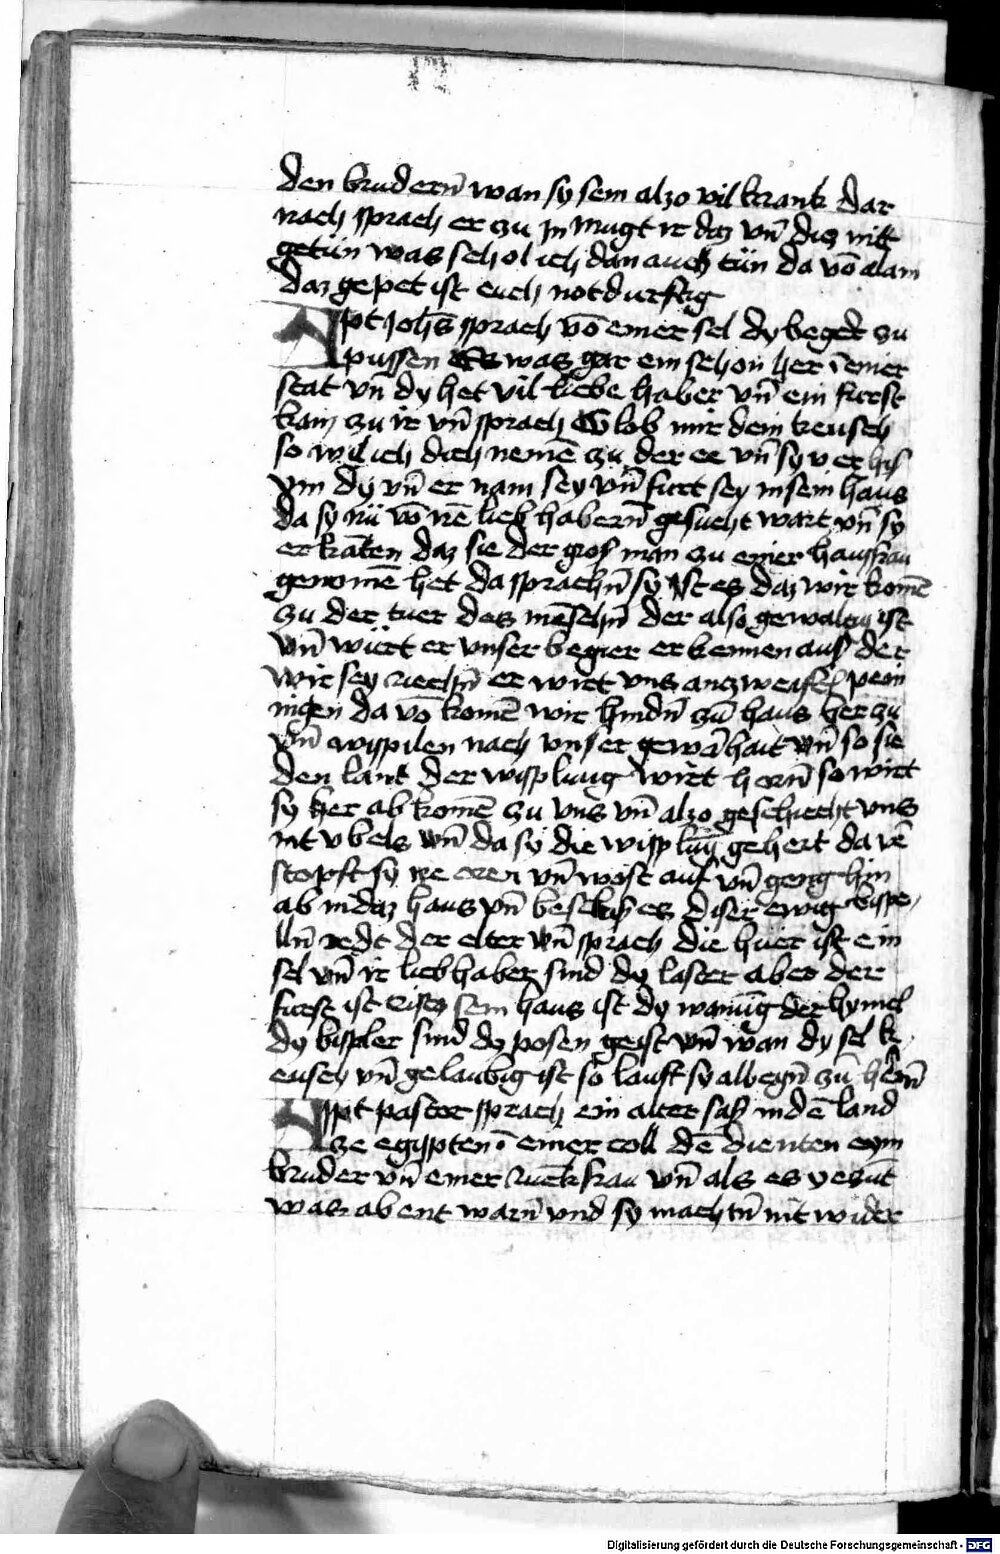 den brudern̄ wan sy sein alzo vil krank dar
nach sprach er zu in mugt ir daz vn̄ diz nitt
getün was schol ich dan auch tün da vō alain
daz gepet ist euch notdurftig
Apt Johs̄ sprach vō einer sel dy begert zu
pussen Es was gar ein schon her in einer
stat vn̄ dy het vil liebe haber vn̄ ein furst
kam zu ir vn̄ sprach Glob mir dein keusch
so wil ich dich nemē zu der ee vn̄ sy verhis
im dy vn̄ er nam sey vn̄ furt sey in sein haus
da sy nü vō irē lieb habern̄ gesucht wart vn̄ sy
erkāten daz sie der gros man zu einer hausfrau
genomē het da sprachn̄ sy Ist es daz wir komē
zu der tuer des mēschn̄ der also gewaltig ist
vn̄ wiert er vnser begier erkennen aus der
wir sey suechn̄ er wirt vns anzweifel pein
nigen da vō komē wir hindn̄ zū haus her zu
vn̄ wispilen nach vnser gewāhait vn̄ so sie
den laut der wisplung wirt horn̄ so wirt
sy her ab komē zu vns vn̄ alzo geschiecht vns
nit vbels vn̄ da sy die wisplūg gehert da vē
stopft sy ire oren vn̄ wist auf vn̄ geng hin
ab in daz haus vn̄ beschlos es diser ewig bispe
lln̄ redt der elter vn̄ sprach die huer ist ein
sel vn̄ ir liebhaber sind dy laster aber der
furst ist Cristus sein haus ist dy wanūg der hymel
dy bispler sind dy posen geist vn̄ wan dy sel k
eusch vn̄ gelaubig ist so lauft sy albegn̄ zū hērn̄
Appt pastor sprach ein alter sas in dē land
ze egippten in einer cell dē dienten eym
bruder vn̄ einer junckfrau vn̄ als es yezūt
was abent warn̄ vnd sy machtn̄ nit wider
Digitalisierung gefördert durch die Deutsche Forschungsgemeinschaft - DFG